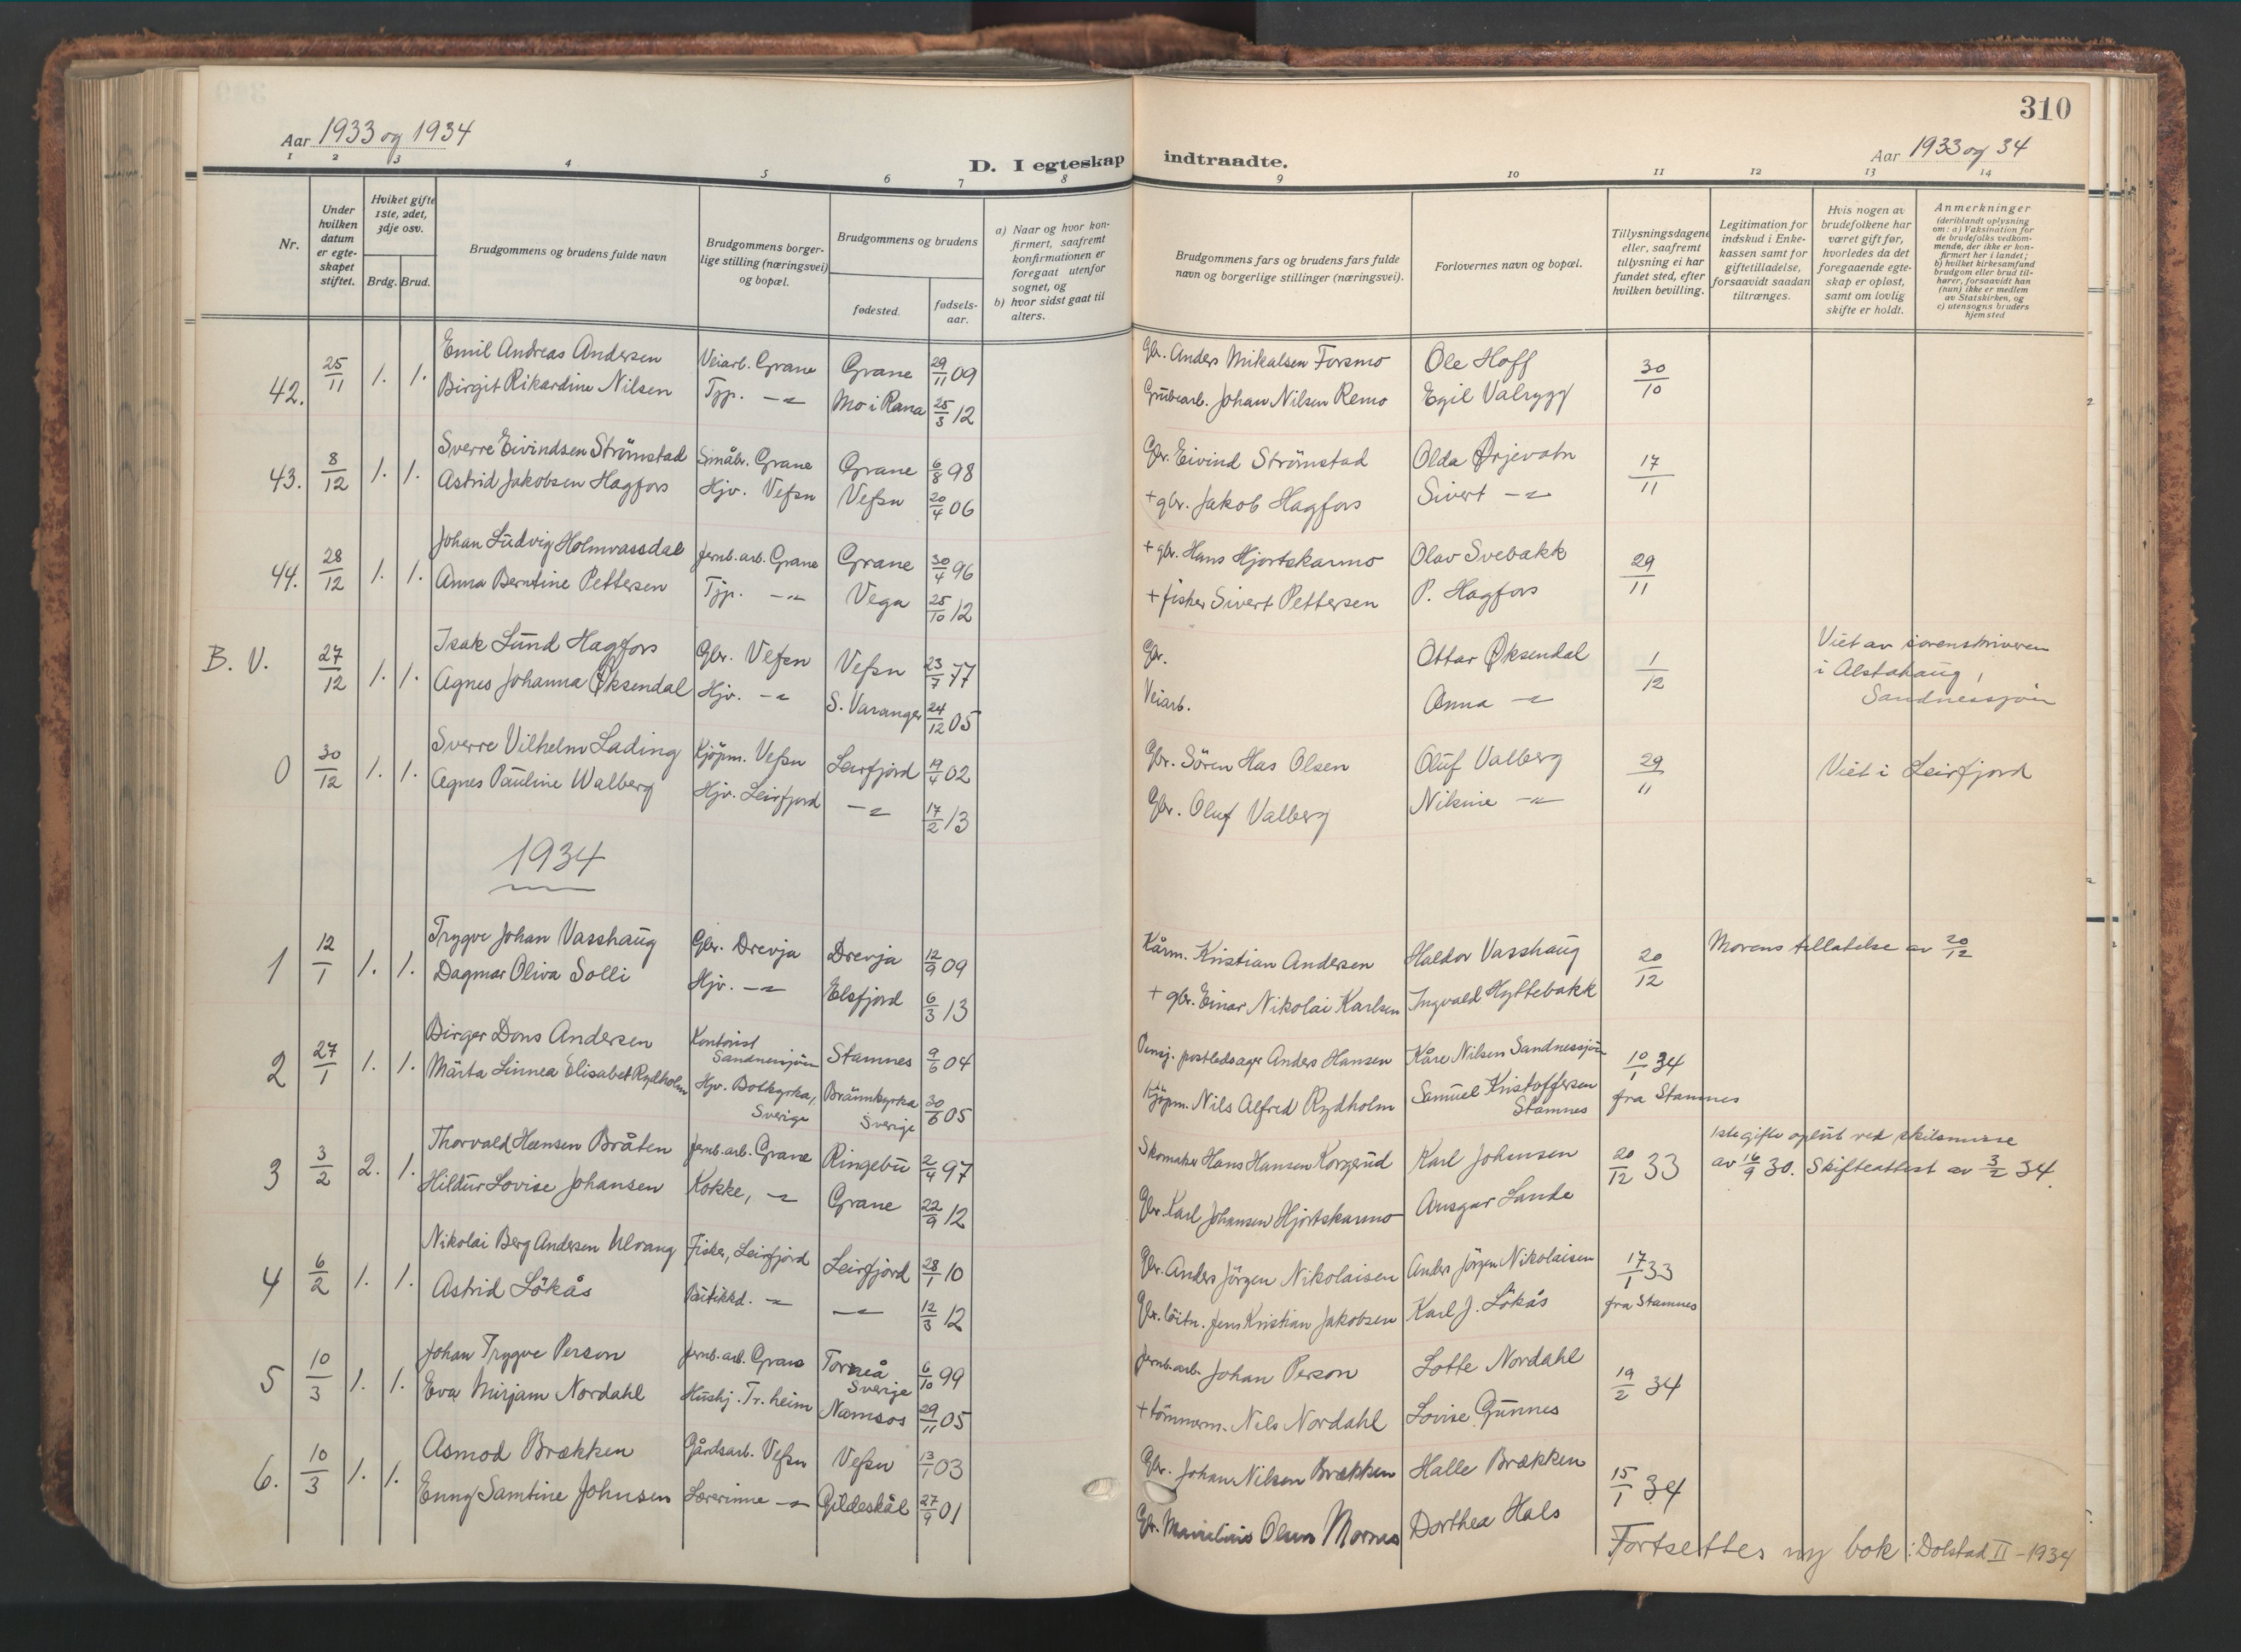 310
Aar 1933 og 1934
D. I egteskap indtraadte.
Aar 1933 og 34
1 2 3 4 5 6 7 8 9 10 11 12 13 14
Nr.
Under hvilken datum er egteskapet stiftet.
Hviket gifte 1ste, 2det, 3dje osv.
Brdg. Brud.
Brudgommens og brudens fulde navn
Brudgommens borgerlige stilling (næringsvei) og bopæl.
Brudgommens og brudens
fødested.
fødselsaar.
a) Naar og hvor konfirmert, saafremt konfirmationen er foregaat utenfor sognet, og
b) hvor sidst gaat til alters.
Brudgommens fars og brudens fars fulde navn og borgerlige stillinger (næringsvei).
Forlovernes navn og bopæl.
Tillysningsdagene eller, saafremt tillysning ei har fundet sted, efter hvilken bevilling.
Legitimation for indskud i Enkekassen samt for giftetilladelse, forsaavidt saadan tiltrænges.
Hvis nogen av brudefolkene har været gift før, hvorledes da det foregaaende egteskap er opløst, samt om lovlig skifte er holdt.
Anmerkninger (deriblandt oplysning om: a) Vaksination for de brudefolks vedkommende, der ikke er konfirmert her i landet; b) hvilket kirkesamfund brudgom eller brud tilhører, forsaavidt han (hun) ikke er medlem av Statskirken, og c) utensogns bruders hjemsted
42. 25/11 1. 1. Emil Andreas Andersen Veiarb. Grane Grane 29/11 09 Gbr. Anders Mikalsen Forsmo Ole Hoff 30/10
Birgit Rikardine Nilsen Tjp. -"- Mo i Rana 25/3 12 Grubearb. Johan Nilsen Remo Egil Valrygg
43. 8/12 1. 1. Sverre Eivindsen Strömstad Småbr. Grane Grane 6/8 98 Gbr. Eivind Strömstad Olda Ørjevatn 17/11
Astrid Jakobsen Hagfors Hjv. Vefsn Vefsn 20/4 06 + gbr. Jakob Hagfors Sivert -"-
44. 28/12 1. 1. Johan Ludvig Holmvassdal Jernb.arb. Grane Grane 30/4 96 + gbr. Hans Hjortskarmo Olav Svebakk 29/11
Anna Berntine Pettersen Tjp. -"- Vega 25/10 12 + fisker Sivert Pettersen P. Hagfors
B. V. 27/12 1. 1. Isak Lund Hagfors Gbr. Vefsn Vefsn 23/7 77 Gbr. Ottar Øksendal 1/12 Viet av sorenskriveren
Agnes Johanna Øksendal Hjv. -"- S. Varanger 24/12 05 Veiarb. Anna -"- i Alstahaug, Sandnessjøen
0 30/12 1. 1. Sverre Vilhelm Lading Kjöpm. Vefsn Leirfjord 19/4 02 Gbr. Sören Has Olsen Oluf Valberg 29/11 Viet i Leirfjord
Agnes Pauline Walberg Hjv. Leirfjord -"- 17/2 13 Gbr. Oluf Valberg Nikine -"-
1934
1 12/1 1. 1. Trygve Johan Vasshaug Gbr. Drevja Drevja 12/9 09 Kårm. Kristian Andersen Haldor Vasshaug 20/12 Morens tillatelse av 20/12
Dagmar Oliva Solli Hjv. -"- Elsfjord 6/3 13 + gbr. Einar Nikolai Karlsen Ingvald Hyttebakk
2 27/1 1. 1. Birger Dons Andersen Kontorist Sandnessjøen Stamnes 9/6 04 Pensj. postledsager Anders Hansen Kåre Nilsen Sandnessjøen 10/1 34
Märta Linnea Elisabet Rydholm Hjv. Botkyrka, Sverige Brännkyrka Sverige 30/6 05 Kjöpm. Nils Alfred Rydholm Samuel Kristoffersen Stamnes fra Stamnes
3 3/2 2. 1. Thorvald Hansen Bråten Jernb.arb. Grane Ringebu 2/4 97 Skomaker Hans Hansen Korgerud Karl Johansen 20/12 33 1ste gifte oplöst ved skilsmisse
Hildur Lovise Johansen Kokke, -"- Grane 22/9 12 Gbr. Karl Johansen Hjortskarmo Ansgar Lande av 16/9 30. Skifteattest av 3/2 34.
4 6/2 1. 1. Nikolai Berg Andersen Ulvang Fisker, Leirfjord Leirfjord 28/1 10 Gbr. Anders Jörgen Nikolaisen Anders Jörgen Nikolaisen 17/1 33
Astrid Lökås Butikkd. -"- -"- 12/3 12 Gbr. löitn. Jens Kristian Jakobsen Karl J. Lökås fra Stamnes
5 10/3 1. 1. Johan Trygve Person Jernb.arb. Grane Torneå Sverige 6/10 99 Jernb.arb. Johan Person Lotte Nordahl 19/2 34
Eva Mirjam Nordahl Hushj. Tr.heim Namsos 29/11 05 + tömmerm. Nils Nordahl Lovise Gunnes
6. 10/3 1. 1. Asmod Brækken Gårdsarb. Vefsn Vefsn 13/1 03 Gbr. Johan Nilsen Brækken Halle Brækken 15/1 34
Enny Samtine Johnsen Lærerinne -"- Gildeskål 27/9 01 Gbr. Olsen Dorthea Hals
Fortsettes ny bok : Dolstad II - 1934